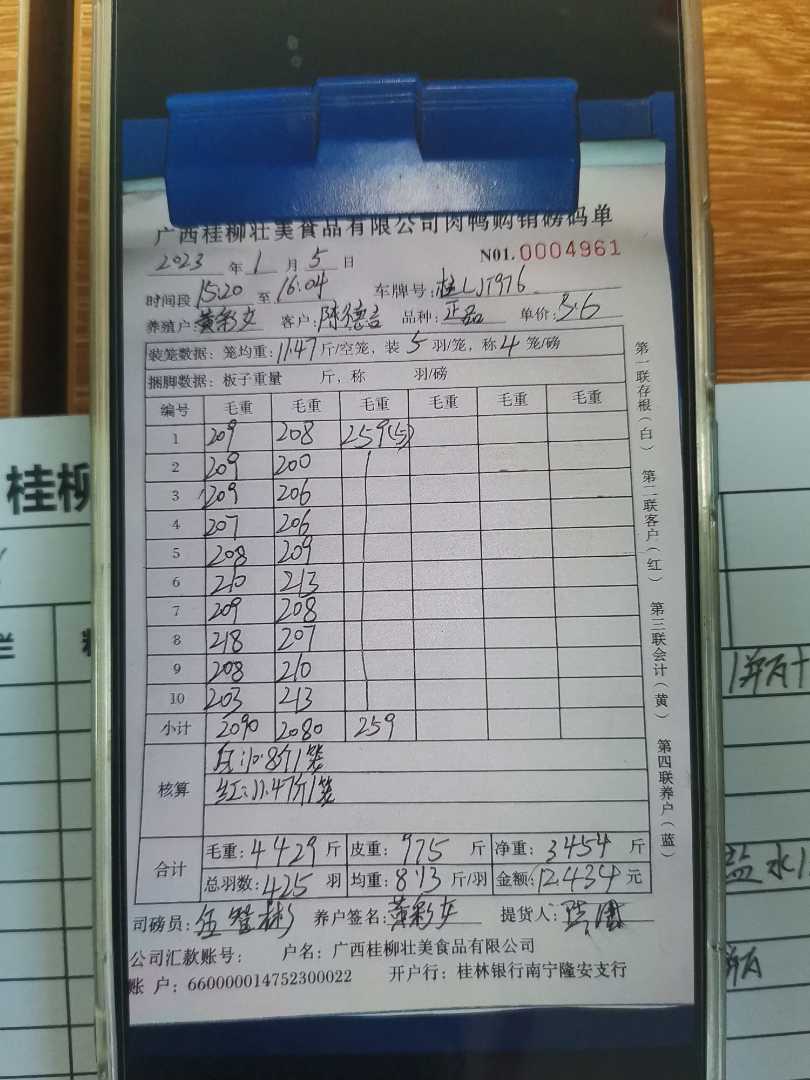 广西桂柳壮美食品有限公司肉鸭购销磅码单
2023 年 1 月 5 日 N01.0004961
时间段 15:20 至 16:04 车牌号:桂LJT976
养殖户 黄彩女 客户: 陈德言 品种: 正品 单价: 3.6
装笼数据: 笼均重: 11.47 斤/空笼, 装 5 羽/笼, 称 4 笼/磅
捆脚数据: 板子重量 斤, 称 羽/磅
编号 毛重 毛重 毛重 毛重 毛重 毛重
1 209 208 259(5)
2 209 200
3 209 206
4 207 206
5 208 209
6 210 213
7 209 208
8 218 207
9 208 210
10 203 213
小计 2090 2080 259
核算
:10.8斤/笼
红:11.47斤/笼
合计
毛重: 4429 斤 皮重: 975 斤 净重: 3454 斤
总羽数: 425 羽 均重: 8.13 斤/羽 金额: 12434 元
司磅员: 养户签名: 黄彩女 提货人:
公司汇款账号: 户名: 广西桂柳壮美食品有限公司
账 户: 660000014752300022 开户行: 桂林银行南宁隆安支行
第一联存根(白) 第二联客户(红) 第三联会计(黄) 第四联养户(蓝)
桂柳
兰
盐水